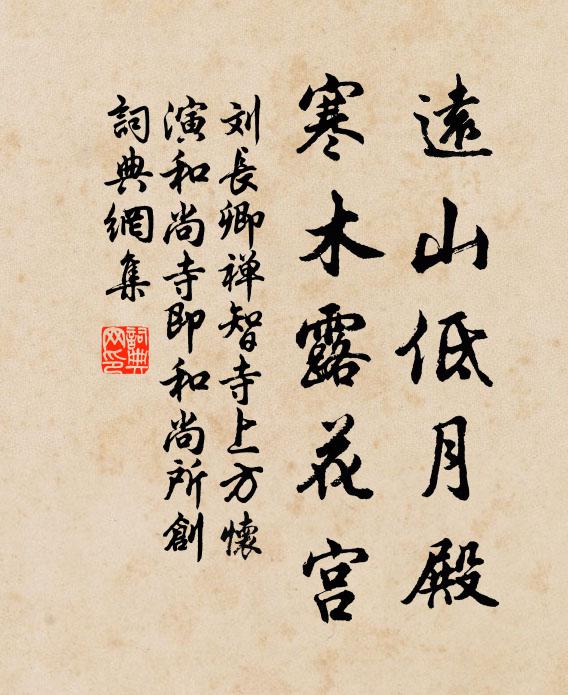 遠山低月殿
寒木露花宫
刘長卿禅智寺上方懐
演和尚寺即和尚所創
詞典網集
詞典
网印